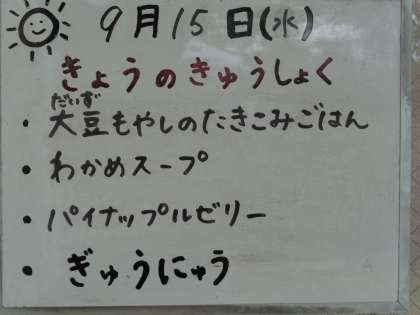 9月15日(水)
きょうのきゅうしょく
だいず
・大豆もやしのたきこみごはん
・わかめスープ
・パイナップルゼリー
・ぎゅうにゅう